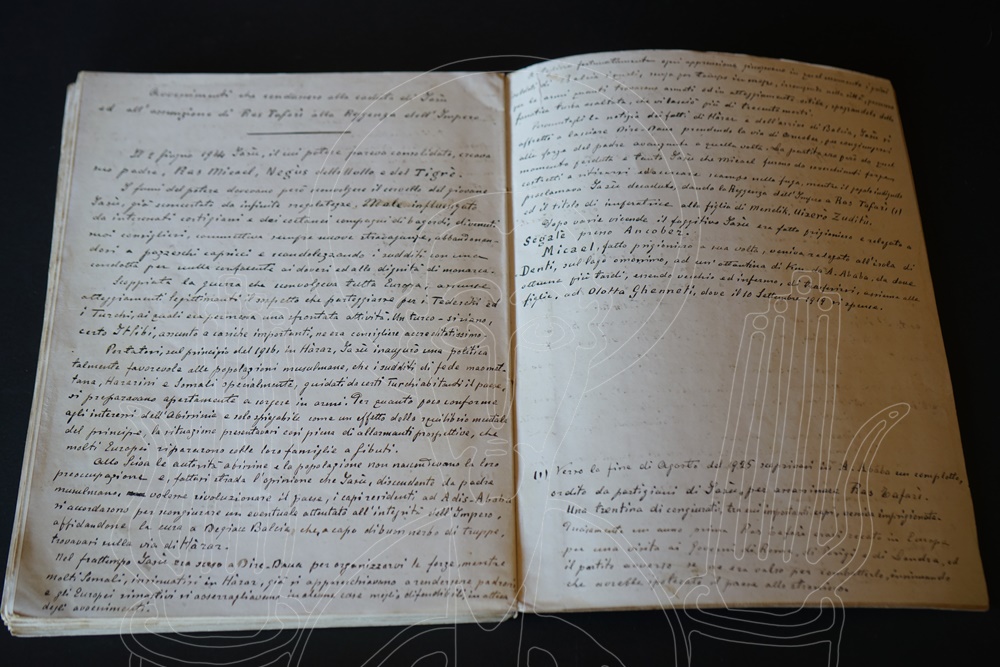 Avvenimenti che condussero alla caduta di Jasu
ed all'assunzione di Ras Tafari alla Reggenza dell'Impero
Il 2 giugno 1914 Jasu, il cui potere pareva consolidato, creava
suo padre, Ras Micael, Negus dello Vollo e del Tigrè.
I fumi del potere dovevano però sconvolgere il cervello del giovane
Jasu, già aumentato da infinite Male influenzato
da interessati cortigiani e dai soltanti compagni di bagordi, divenuti
suoi consiglieri, commetteva sempre nuove stravaganze, abbandonan-
dosi a pazzeschi capricci e scandolezzando i sudditi con una
condotta per nulla confacente ai doveri ed alla dignità di monarca.
Scoppiata la guerra che sconvolgeva tutta Europa, assunse
atteggiamenti legittimanti il sospetto che parteggiasse per i Tedeschi ed
i Turchi, ai quali era, permessa una sfrontata attività. Un turco-siriano,
certo Itlibi, assunto a cariche importanti, ne era consigliere accreditatissimo.
Portatosi, sul principio del 1916, in Hàrar, Jasu inaugurò una politica
talmente favorevole alle popolazioni musulmane, che i sudditi di fede maomet-
tana, Hararini e Somali specialmente, guidati da certi Turchi abitanti il paese,
si preparavano apertamente a sorgere in armi. Per quanto poco conforme
agli interessi dell'Abissinia e solo spiegabile come un effetto dello squilibrio mentale
del principe, la situazione presentavasi così piena di allarmanti prospettive, che
molti Europei ripararono colle loro famiglie a Gibuti.
Allo Scioa le autorità abissine e la popolazione non nascondevano la loro
preoccupazione e, fattasi strada l'opinione che Jasu, discendente da padre
musulmano, volesse rivoluzionare il paese, i capi residenti ad Adis-Ababa
si accordarono per scongiurare un eventuale attentato all'integrità dell'Impero,
affidandone la cura a Degiac Balcia, che, a capo di buon nerbo di truppe,
trovavasi sulla via di Hàrar.
Nel frattempo Jasu era sceso a Dire-Daua per organizzarvi le forze, mentre
molti Somali, insinuatisi in Hàrar, già si apprestavano a rendersene padroni
e gli Europei rimastivi si asserragliavano in alcune case meglio difendibili, in attesa
degli avvenimenti.
fortunatamente ogni apprensione
di Balcia
per le armi questi trovarono assenti ed in atteggiamento ostile, sperdendo dalla
funesta turba esaltata, un vilissimo più di trecento morti.
la notizia dei fatti di Hàrar e dell'arrivo di Balcia, Jasu si
affrettò a lasciare Dire-Daua prendendo la via di
alle forze del padre avanzanti a quella volta. La partita era già da quel
momento perduta e tanto Jasu che Micael furono da sconfitti
costretti a ritirarsi ed a cercare scampo nella fuga, mentre il popolo indignato
proclamava Jasu decaduto, dando la Reggenza dell'Impero a Ras Tafari (1)
ed il titolo di imperatrice alla figlia di Menelik, Uizero Zuditu.
Dopo varie vicende il fuggitivo Jasu era fatto prigioniero e relegato a
Segalè presso Ancober.
Micael, fatto prigioniero a sua volta, veniva relegato all'isola di
Denti, sul lago omonimo, ad un'ottantina di km. da A. Ababa, da dove
ottenne più tardi, essendo vecchio ed infermo, di trasferirsi, assieme alle
figlie, ad Olotta Ghennet, dove il 10 Settembre 1918 si spense.
(1) Verso la fine di Agosto del 1925 scoprivasi in A. Ababa un complotto,
ordito da partigiani di Jasu, per assassinare Ras Tafari.
Una trentina di congiurati, tra cui importanti capi, venne imprigionata.
Quasi un anno prima Ras Tafari erasi recato in Europa
per una visita ai Governi di Roma, di Parigi e di Londra, ed
il partito avverso se ne era valso per combatterlo, insinuando
che avrebbe ipotecato il paese allo straniero.